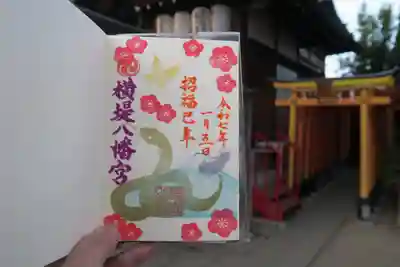 令和七年
一月三日
招福巳年
横堤八幡宮